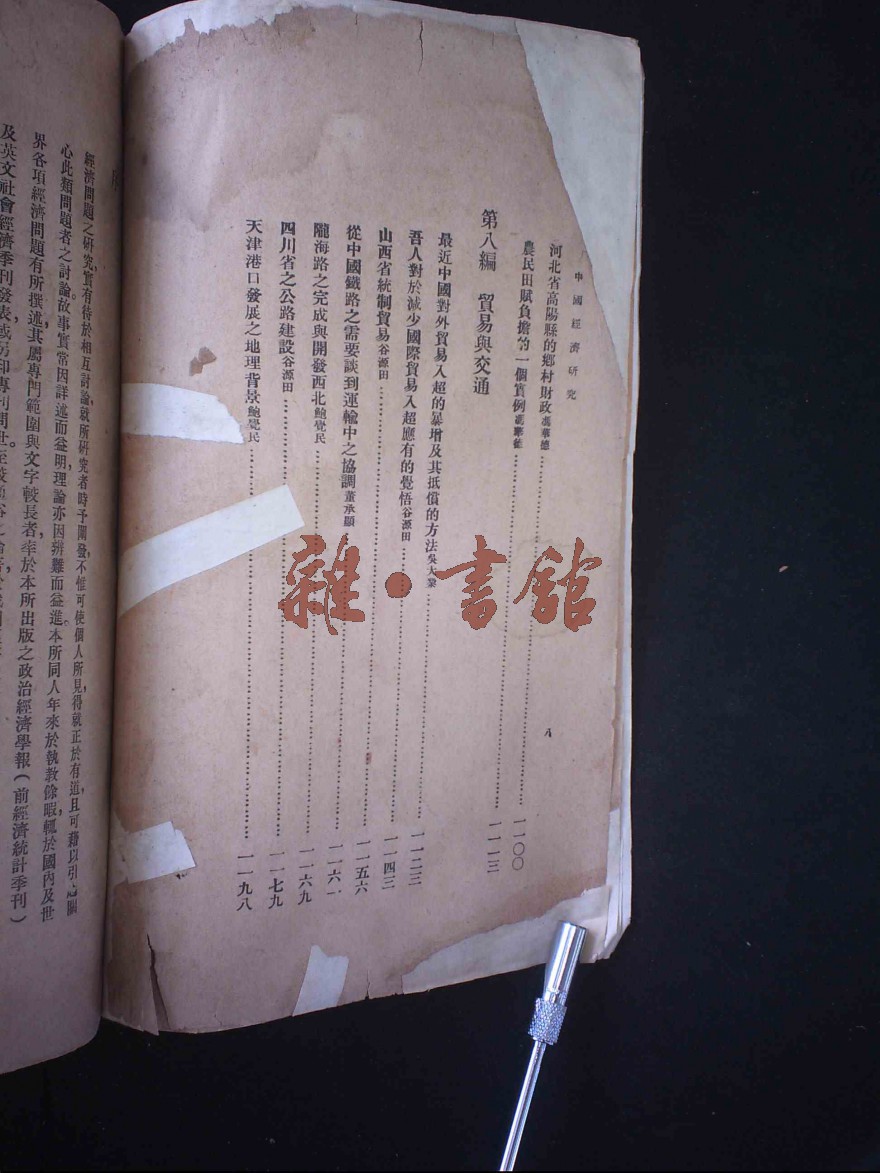 中國經濟研究
河北省高陽縣的鄉村財政 馮華德……一一〇〇
農民田賦負擔的一個實例 馮華德……一一一三
第八編 貿易與交通
最近中國對外貿易入超的暴增及其抵償的方法 吳大業……一一二三
吾人對於減少國際貿易入超應有的覺悟 谷源田……一一四三
山西省統制貿易 谷源田……一一五六
從中國鐵路之需要談到運輸中之協調 董承顯……一一六一
隴海路之完成與開發西北 鮑覺民……一一六九
四川省之公路建設 谷源田……一一七九
天津港口發展之地理背景 鮑覺民……一一九八
A
雜·書館
序
經濟問題之研究,實有待於相互討論,就所研究者時予闡發,不惟可使個人所見得就正於有道,且可藉以引起關
心此類問題者之討論。故事實當因詳述而益明,理論亦因辨難而益進。本所同人年來於執教餘暇,輒於國內及世
界各項經濟問題有所撰述,其屬專門範圍與文字較長者,率於本所出版之政治經濟學報(前經濟統計季刊)
及英文社會經濟季刊發表,或另印專刊問世。至